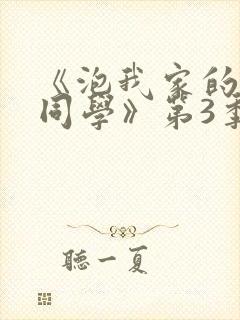 《泡我家的
同學》第3季
聽一夏